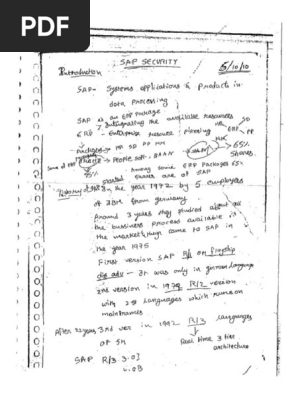 PDF
SAP SECURITY
5/10/10
Introduction
SAP - Systems applications & Products in
data processing
SAP is an ERP Package
Integrating the available resources
ERP - Enterprise resource planning
Packages → MM SD PP HR
65%
→ People soft, BAAN
shares
75%
Among some ERP Packages 65%
shares are of SAP
started in the year 1972 by 5 employees
of IBM from Germany
Around 3 years they studied about all
the business process available in
the market, then came to SAP in
the year 1975
First version SAP R/1 on
dis adv - It was only in german language
2nd version in 1979 R/2 version
with 2 languages which runs on
mainframes
After 12 years 3rd ver in 1992 R/3 languages
Real time 3 tier
architecture
SAP R/3 3.0I